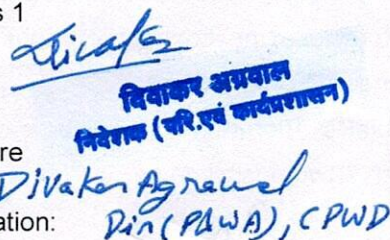 s 1
Divaker
दिवाकर अग्रवाल
निदेशक (परि.एवं कार्यप्रशासन)
re
Divaker Agrawal
ation: Dir(P&WA), CPWD